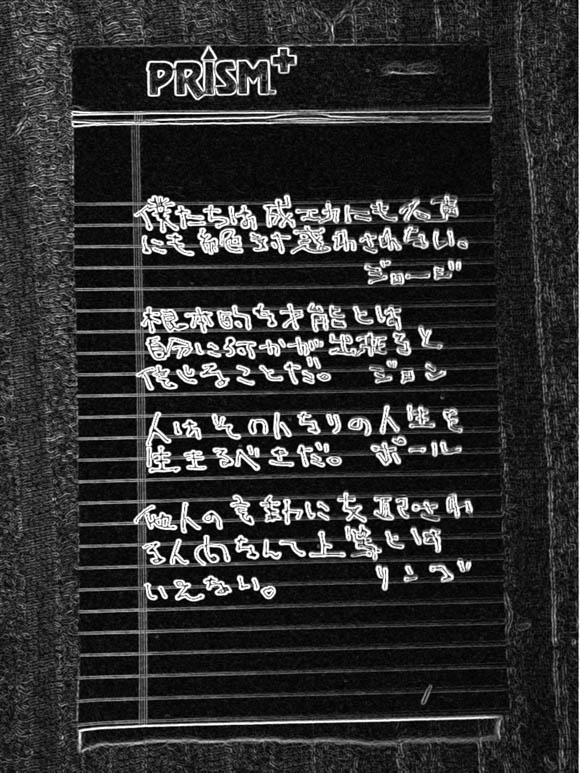 僕たちは成功にも
にも 惑わされない。
ジョージ
根本的な才能とは
自分に何かが出来ると
信じることだ。 ジョン
人はその人なりの人生を
生きるべきだ。 ポール
他人の言動に支配され
なんて上等とは
いえない。 リンゴ
PRISM+